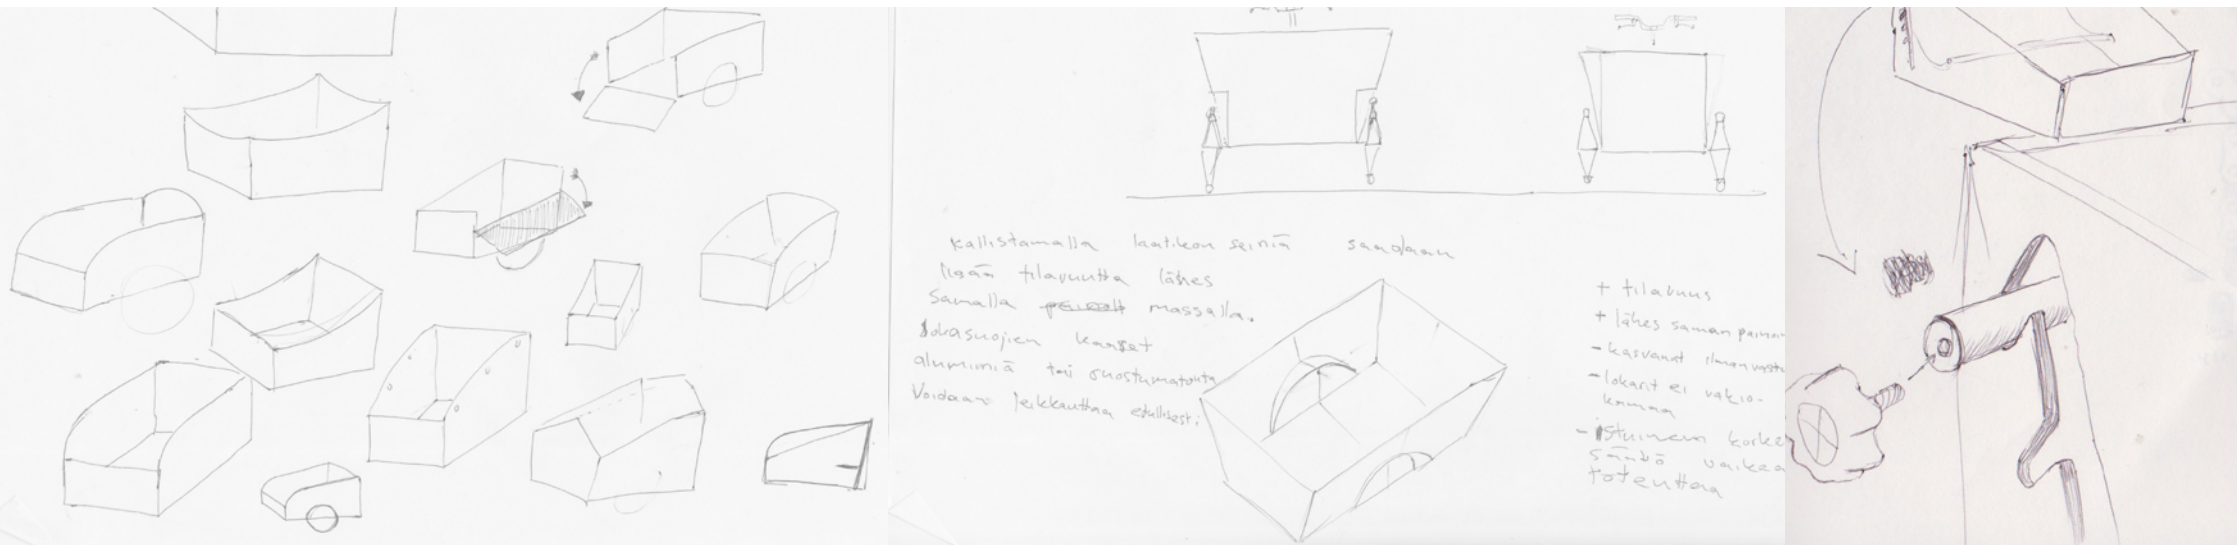 Kallistamalla laatikon seiniä saadaan
lisää tilavuutta lähes
samalla massalla.
Lokasuojien kaaret
alumiiniä tai ruostumatonta
Voidaan leikkauttaa edullisesti
+ tilavuus
+ lähes saman painoi
- kasvanut ilmanvasta
- lokarit ei vakio-
kamaa
- istuimen korke
säätö vaikea
toteuttaa